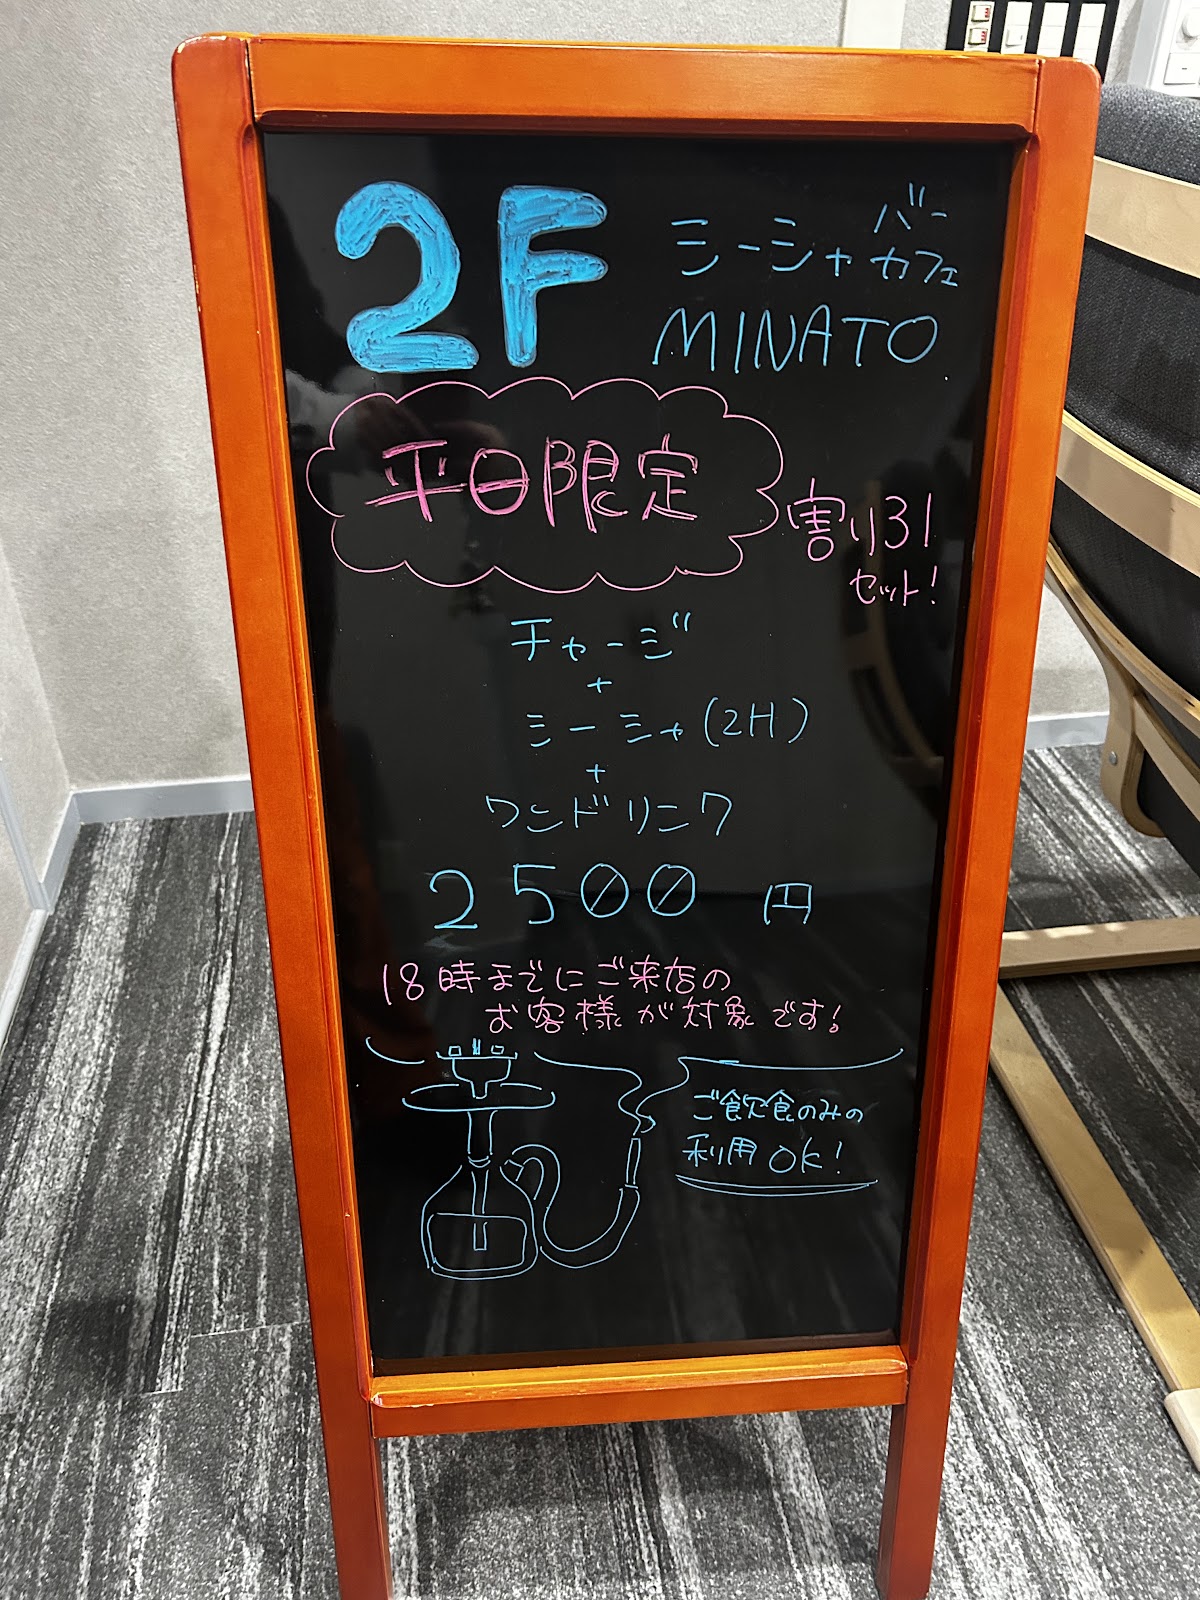 2F
シーシャ バー
カフェ
MINATO
平日限定
割り31
セット!
チャージ
+
シーシャ(2H)
+
ワンドリンク
2500 円
18時までにご来店の
お客様が対象です!
ご飲食のみの
利用OK!